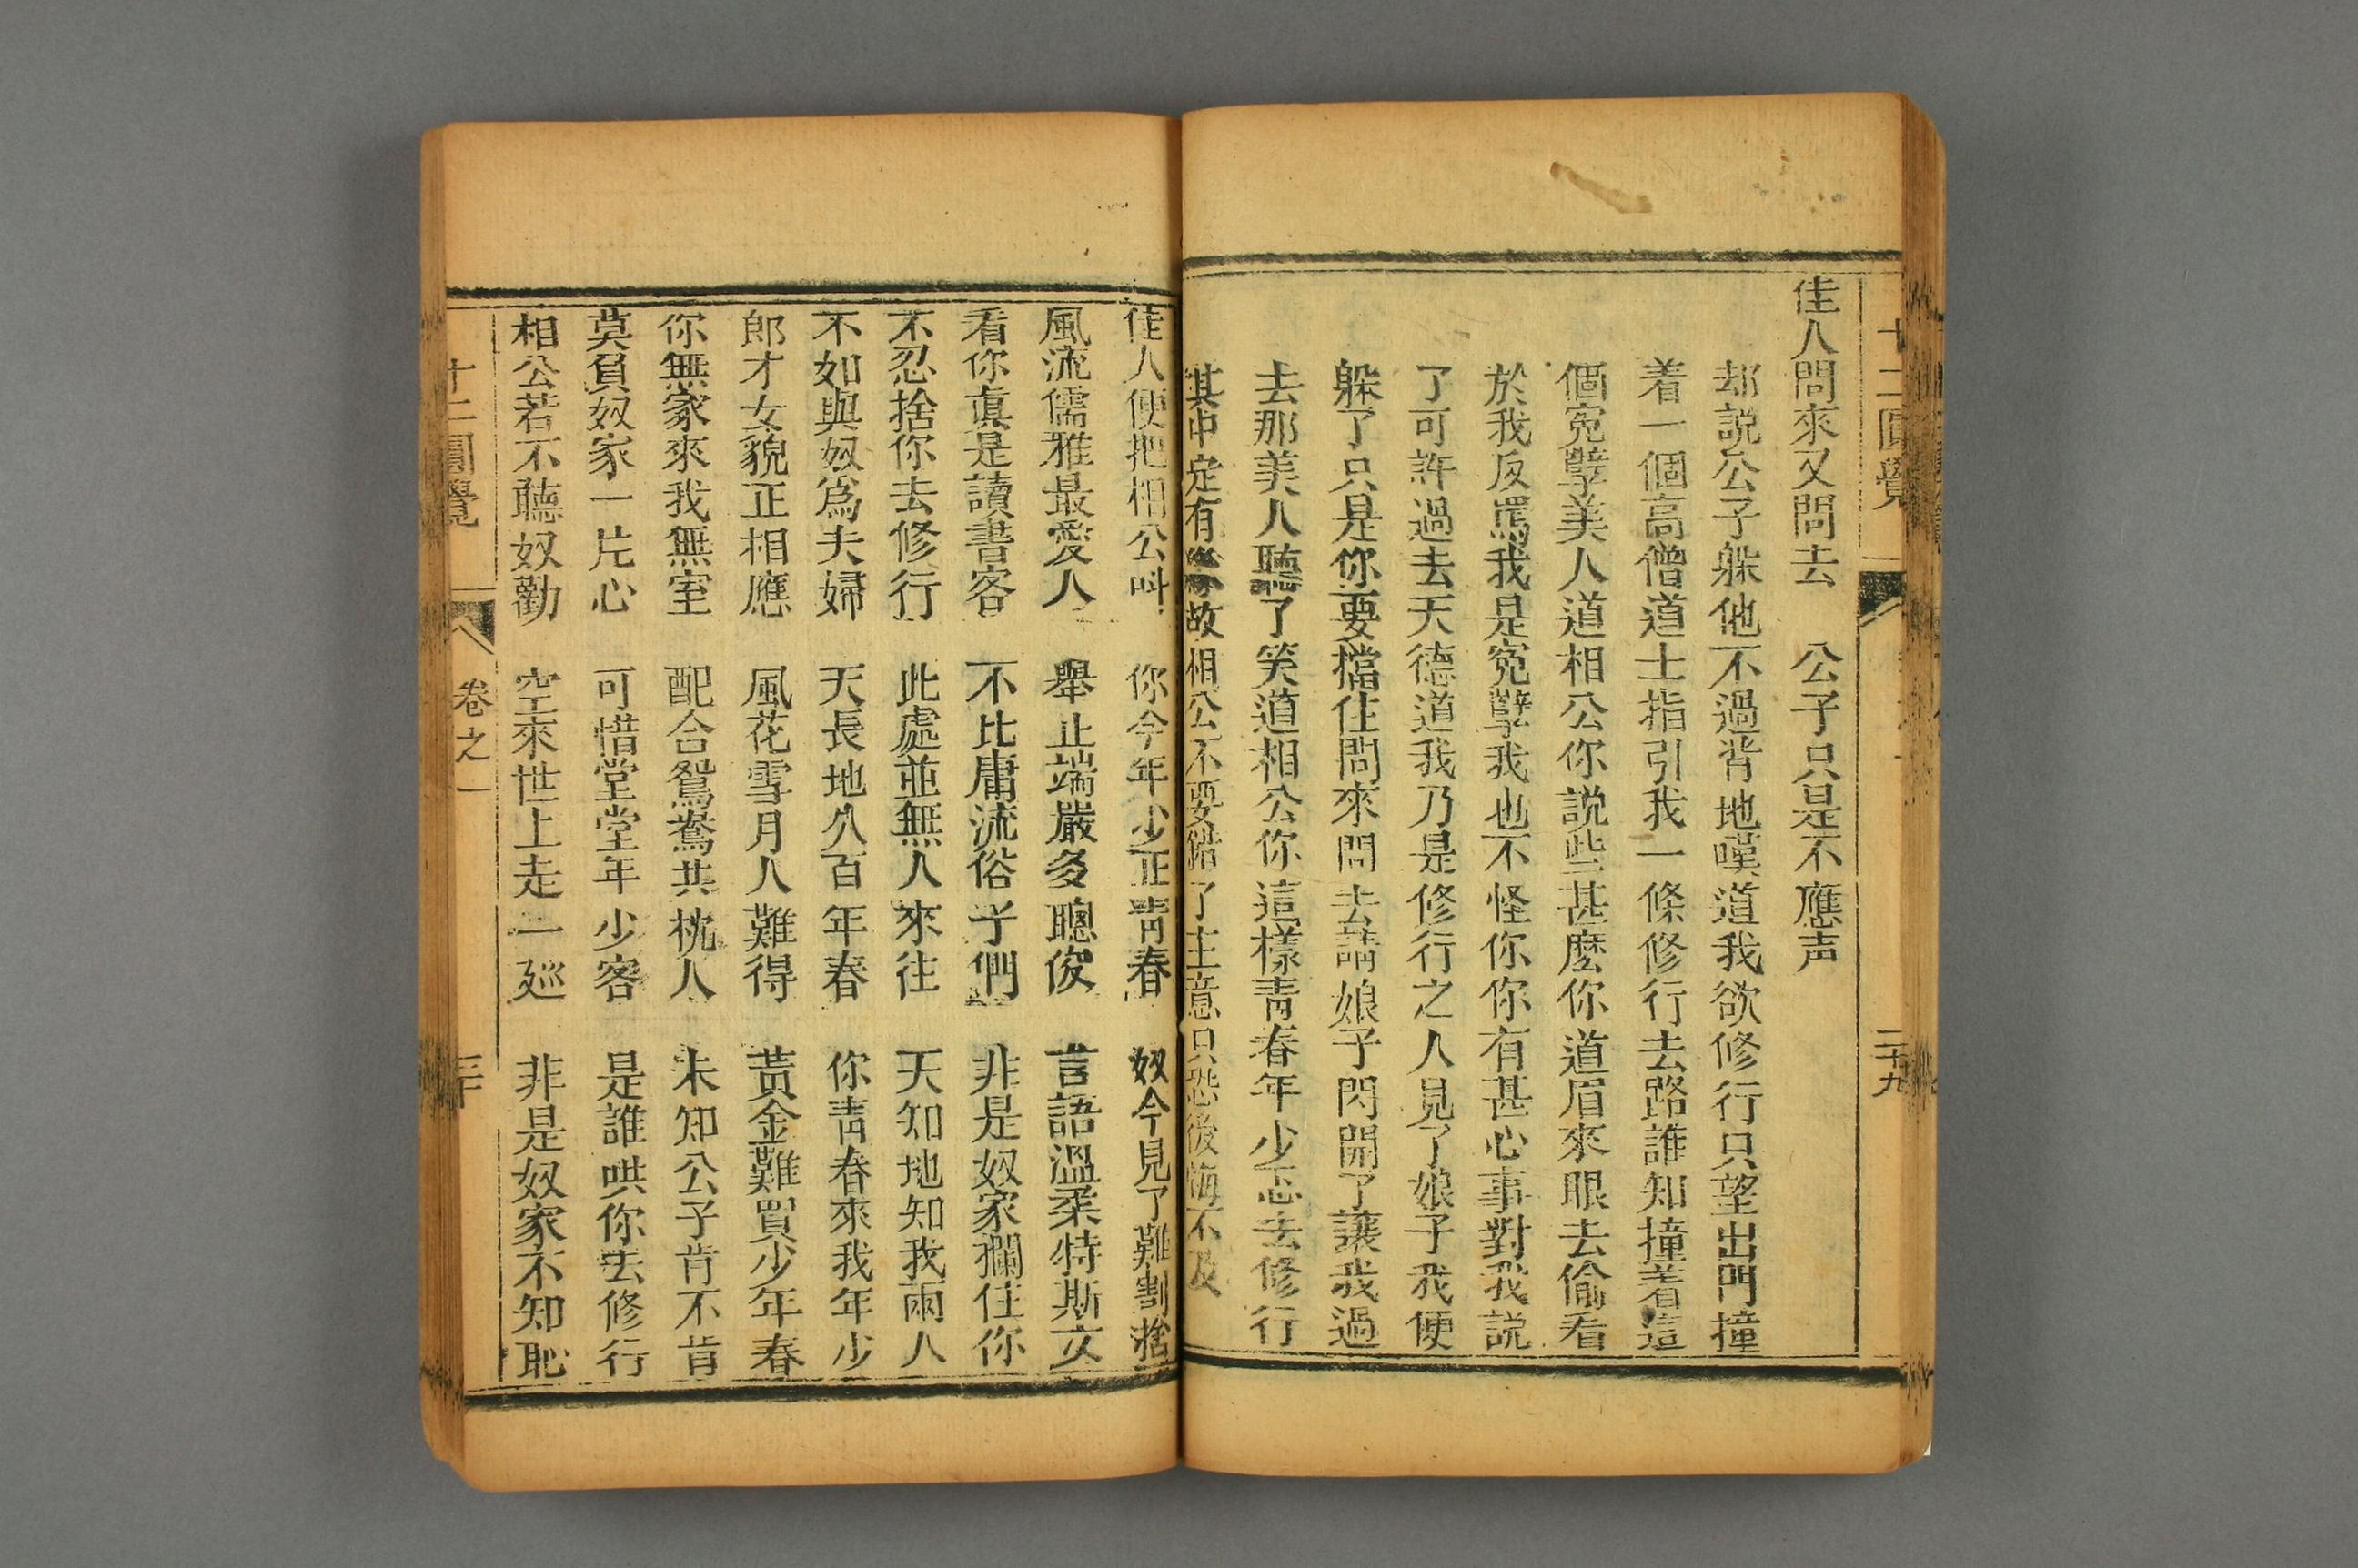 十二圓覺
二十九
佳人問來又問去 公子只是不應声
却説公子躲他不過背地嘆道我欲修行只望出門撞
着一個高僧道士指引我一條修行去路誰知撞着這
個冤孽美人道相公你説些甚麽你道眉來眼去偷看
於我反罵我是冤孽我也不怪你你有甚心事對我説
了可許過去天德道我乃是修行之人見了娘子我便
躲了只是你要擋住問來問去請娘子閃開了讓我過
去那美人聽了笑道相公你這樣青春年少怎去修行
其中定有緣故相公不要錯了主意只恐後悔不及
佳人便把相公呌 你今年少正青春 奴今見了難割捨
風流儒雅最愛人 舉止端嚴多聰俊 言語溫柔特斯文
看你真是讀書客 不比庸流俗子們 非是奴家攔住你
不忍捨你去修行 此處並無人來往 天知地知我兩人
不如與奴爲夫婦 天長地久百年春 你青春來我年少
郎才女貌正相應 風花雪月人難得 黃金難買少年春
你無家來我無室 配合鴛鴦共枕人 未知公子肯不肯
莫負奴家一片心 可惜堂堂年少客 是誰哄你去修行
相公若不聽奴勸 空來世上走一廵 非是奴家不知恥
十二圓覺
卷之一
三十